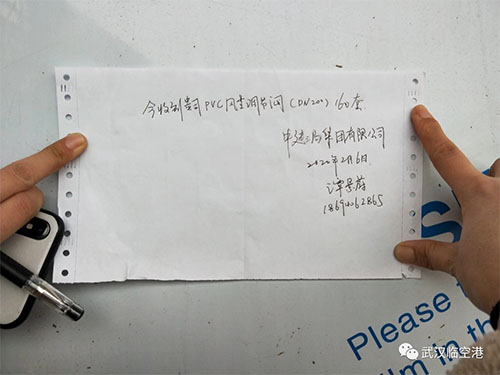 今收到贵司PVC风量调节阀(DN200)160套
中建三局集团有限公司
2020年2月6日
Please
in the
武汉临空港